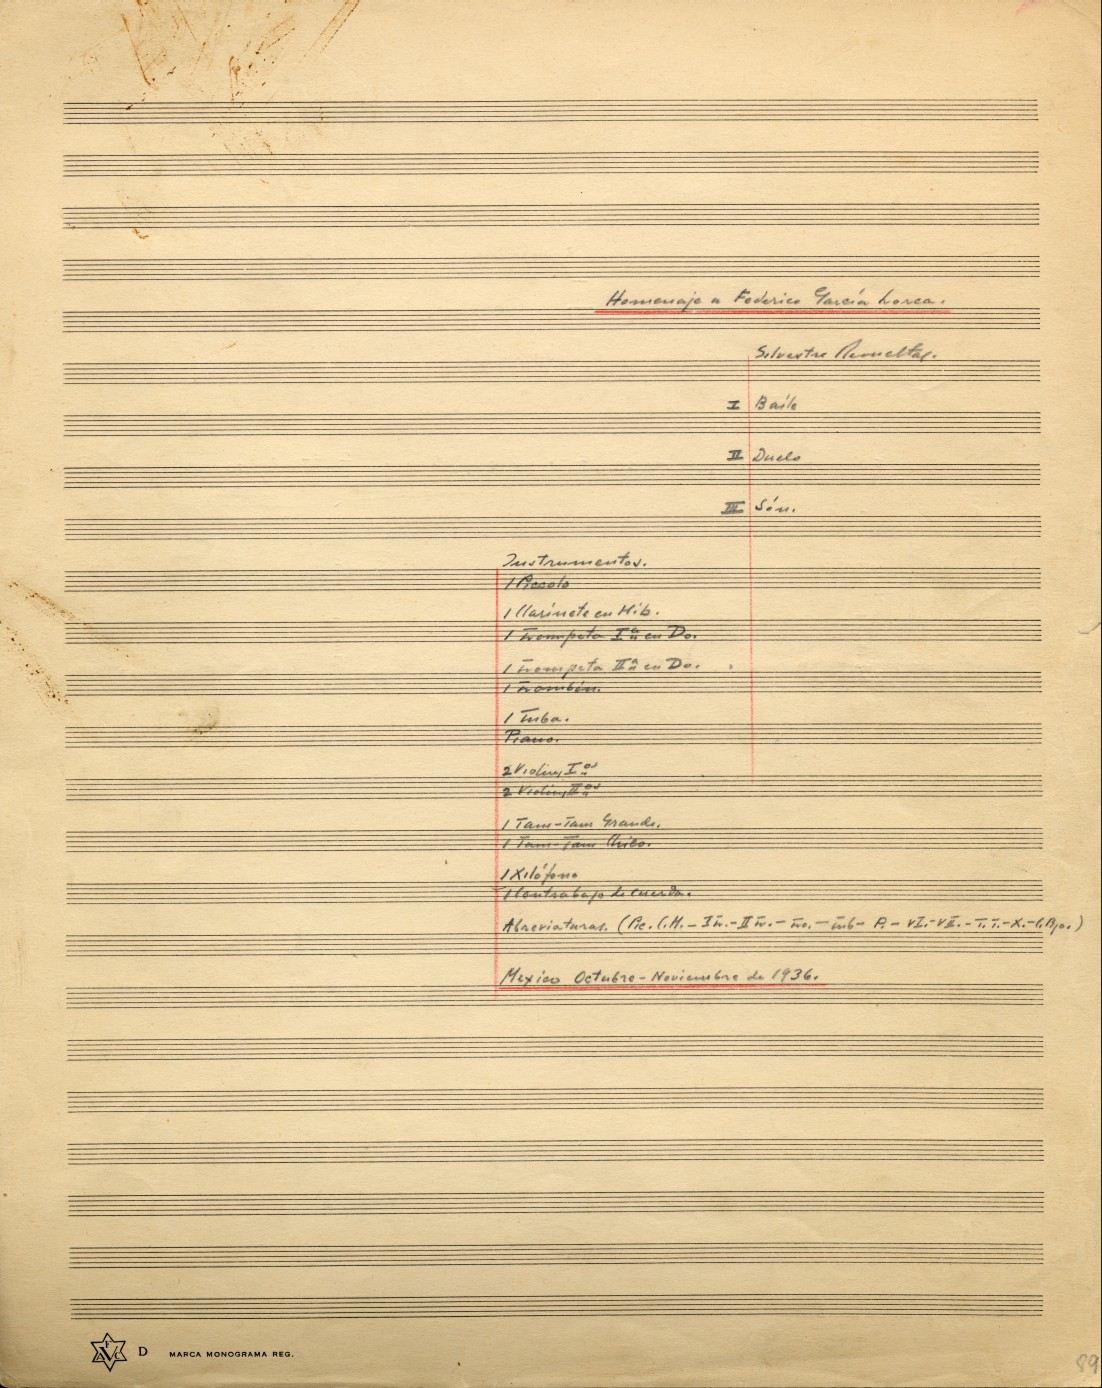 Homenaje a Federico García Lorca.
Silvestre Revueltas.
I Baile
II Duelo
III Són.
Instrumentos.
1 Piccolo
1 Clarinete en Mib.
1 Trompeta Iª en Do.
1 Trompeta IIª en Do.
1 Trombón.
1 Tuba.
Piano.
2 Violines Ios
2 Violines IIos
1 Tam-Tam Grande.
1 Tam-Tam Chico.
1 Xilófono
1 Contrabajo de cuerda.
Abreviaturas. (Pic. C.M. - I Tr. - II Tr. - Tro. - Tub - P. - VI. - VII. - T.T. - X. - C.Bjo.)
Mexico Octubre - Noviembre de 1936.
D MARCA MONOGRAMA REG.
89